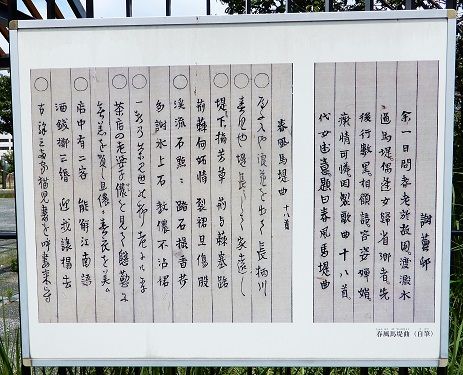 謝蕪邨
余一日問耆老於故園。渡澱水
過馬堤。偶逢女歸省郷者。先
後行數里。相顧語。容姿嬋娟
癡情可憐。因製歌曲十八首
代女述意。題曰春風馬堤曲
春風馬堤曲 十八首
○やぶ入や浪花を出て長柄川
○春風や堤長うして家遠し
○堤下摘芳草 荊与棘塞路
荊棘何妬情 裂裙且傷股
○溪流石點々 踏石撮香芹
多謝水上石 教儂不沾裙
○一軒の茶見世の柳老にけり
○茶店の老婆子儂を見て慇懃に
無恙を賀し且儂が春衣を美ム
○店中有二客 能解江南語
酒錢擲三緡 迎我讓榻去
○古驛三兩家猫兒妻を呼妻来らず
春風馬堤曲(自筆)